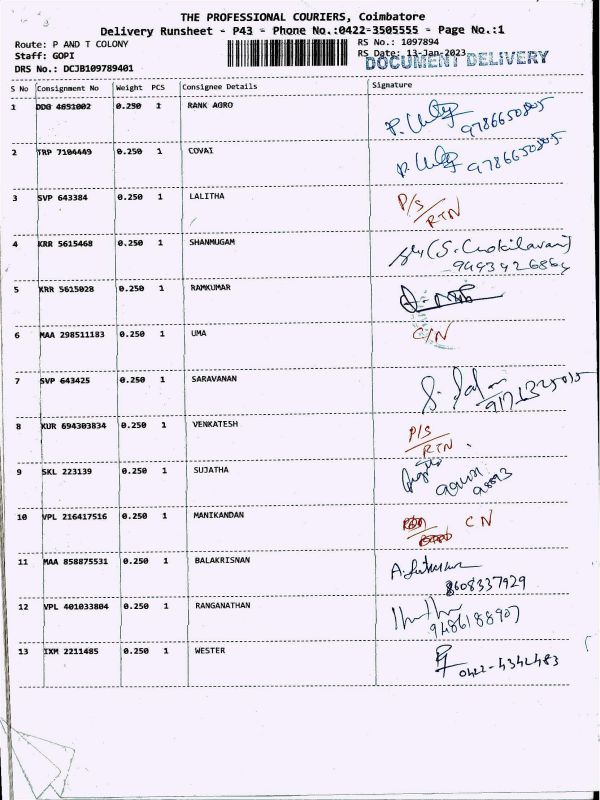 THE PROFESSIONAL COURIERS, Coimbatore
Delivery Runsheet - P43 - Phone No.:0422-3505555 - Page No.:1
Route: P AND T COLONY
RS No.: 1097894
Staff: GOPI
RS Date: 13-Jan-2023
DOCUMENT DELIVERY
DRS No.: DCJB109789401
S No Consignment No Weight PCS Consignee Details Signature
1 DDG 4651002 0.250 1 RANK AGRO 9786650805
2 TRP 7104449 0.250 1 COVAI 9786650805
3 SVP 643384 0.250 1 LALITHA P/S RTN
4 KRR 5615468 0.250 1 SHANMUGAM
5 KRR 5615028 0.250 1 RAMKUMAR
6 MAA 298511183 0.250 1 UMA C/N
7 SVP 643425 0.250 1 SARAVANAN
8 KUR 694303834 0.250 1 VENKATESH P/S RTN.
9 SKL 223139 0.250 1 SUJATHA
10 VPL 216417516 0.250 1 MANIKANDAN C N
11 MAA 858875531 0.250 1 BALAKRISNAN 8608337929
12 VPL 401033804 0.250 1 RANGANATHAN 9486188907
13 IXM 2211485 0.250 1 WESTER 0422-4342483